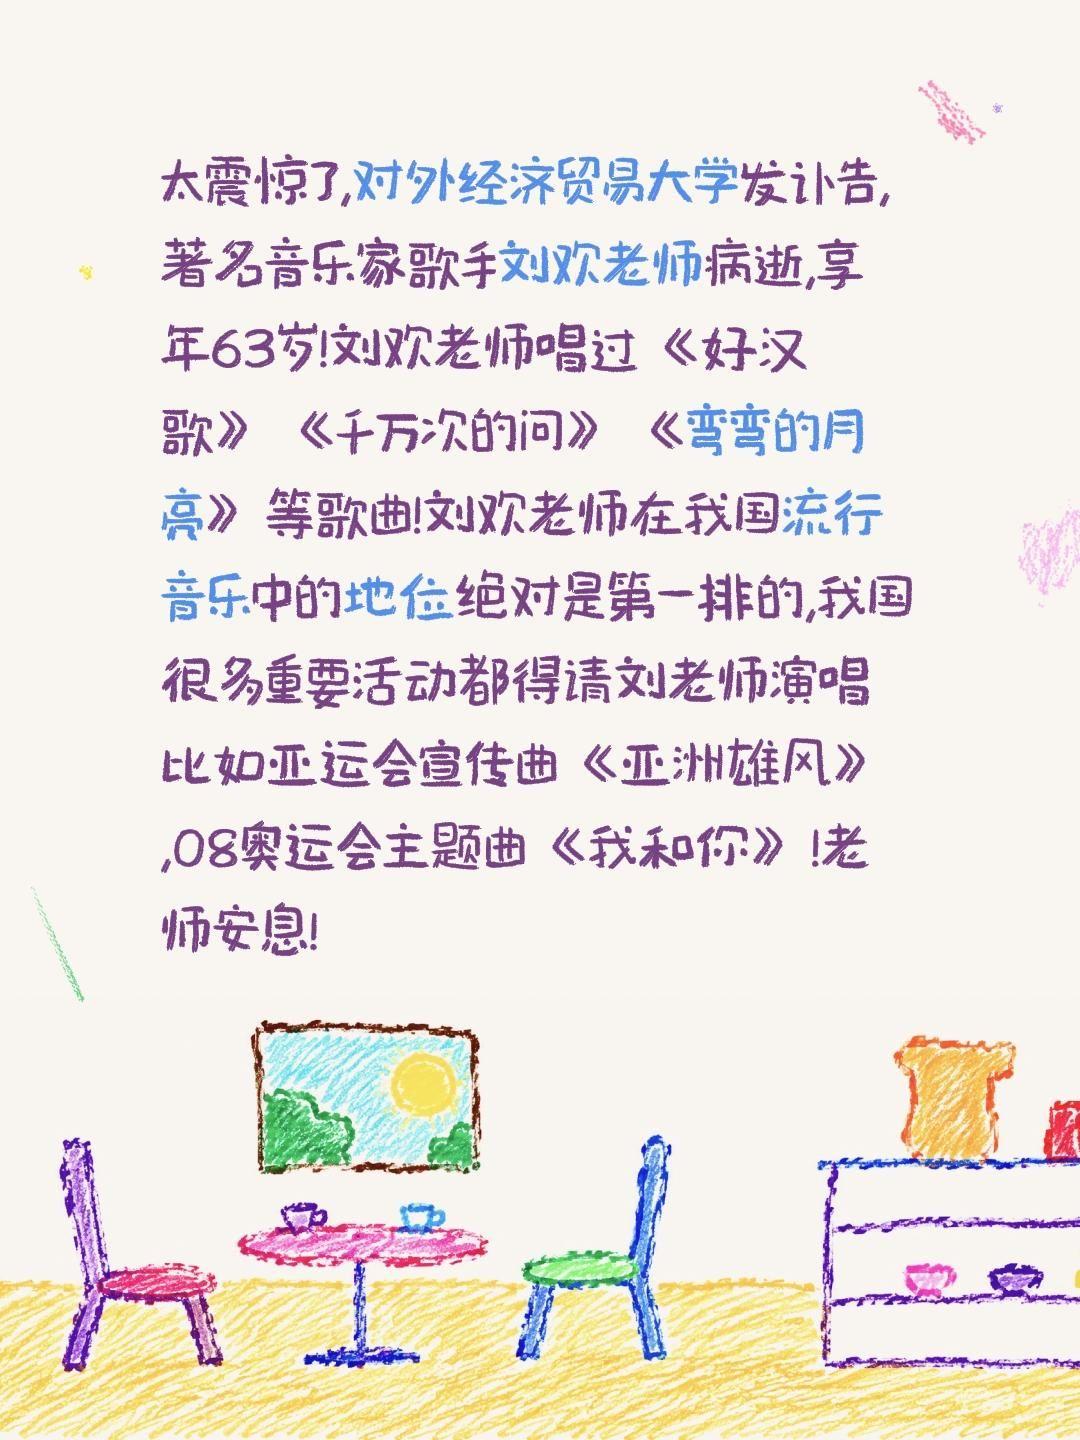 太震惊了,对外经济贸易大学发讣告,
著名音乐家歌手刘欢老师病逝,享
年63岁!刘欢老师唱过《好汉
歌》 《千万次的问》 《弯弯的月
亮》 等歌曲!刘欢老师在我国流行
音乐中的地位绝对是第一排的,我国
很多重要活动都得请刘老师演唱
比如亚运会宣传曲《亚洲雄风》
,08奥运会主题曲《我和你》 !老
师安息!